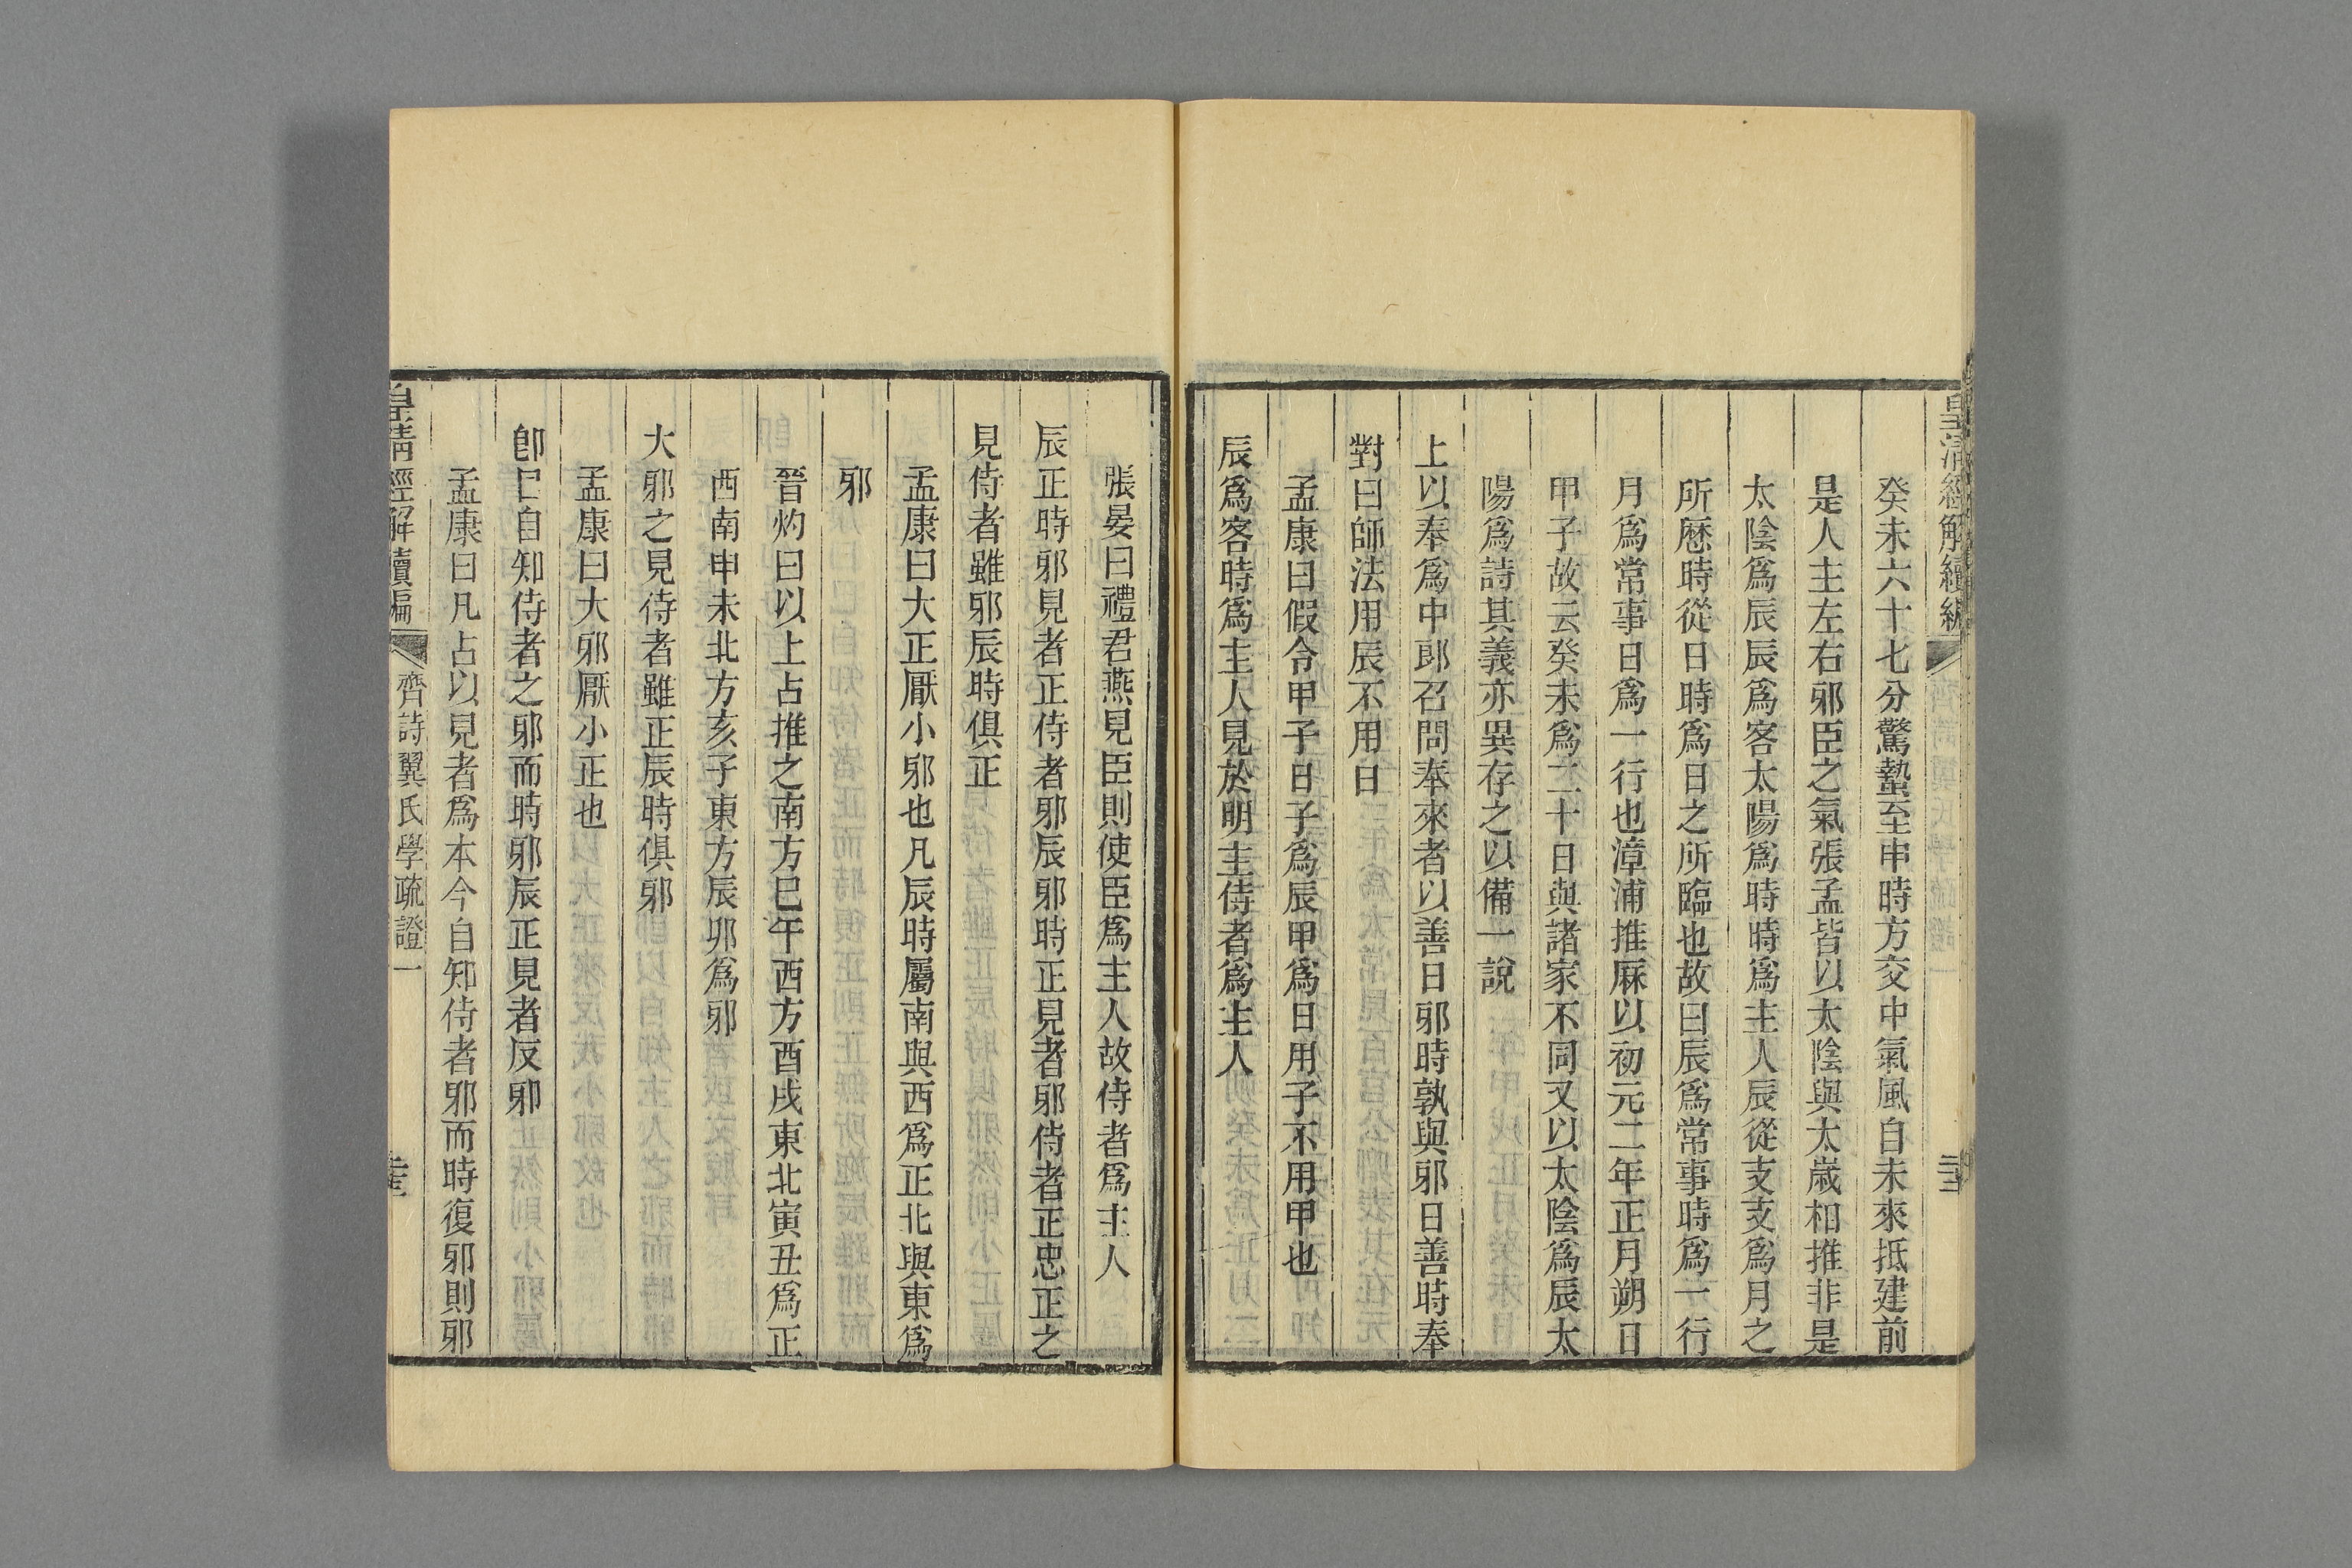 癸未六十七分驚蟄至申時方交中氣風自未來抵建前
是人主左右邪臣之氣張孟皆以太陰與太歲相推非是
太陰爲辰辰爲客太陽爲時時爲主人辰從支支爲月之
所歷時從日時爲日之所臨也故曰辰爲常事時爲一行
月爲常事日爲一行也漳浦推厤以初元二年正月朔日
甲子故云癸未爲二十日與諸家不同又以太陰爲辰太
陽爲詩其義亦異存之以備一說
上以奉爲中郎召問奉來者以善日邪時孰與邪日善時奉
對曰師法用辰不用日
孟康曰假令甲子日子爲辰甲爲日用子不用甲也
辰爲客時爲主人見於明主侍者爲主人
張晏曰禮君燕見臣則使臣爲主人故侍者爲主人
辰正時邪見者正侍者邪辰邪時正見者邪侍者正忠正之
見侍者雖邪辰時俱正
孟康曰大正厭小邪也凡辰時屬南與西爲正北與東爲
邪
晉灼曰以上占推之南方巳午西方酉戌東北寅丑爲正
西南申未北方亥子東方辰卯爲邪
大邪之見侍者雖正辰時俱邪
孟康曰大邪厭小正也
卽㠯自知侍者之邪而時邪辰正見者反邪
孟康曰凡占以見者爲本今自知侍者邪而時復邪則邪
皇淸經解續編
齊詩翼氏學疏證一